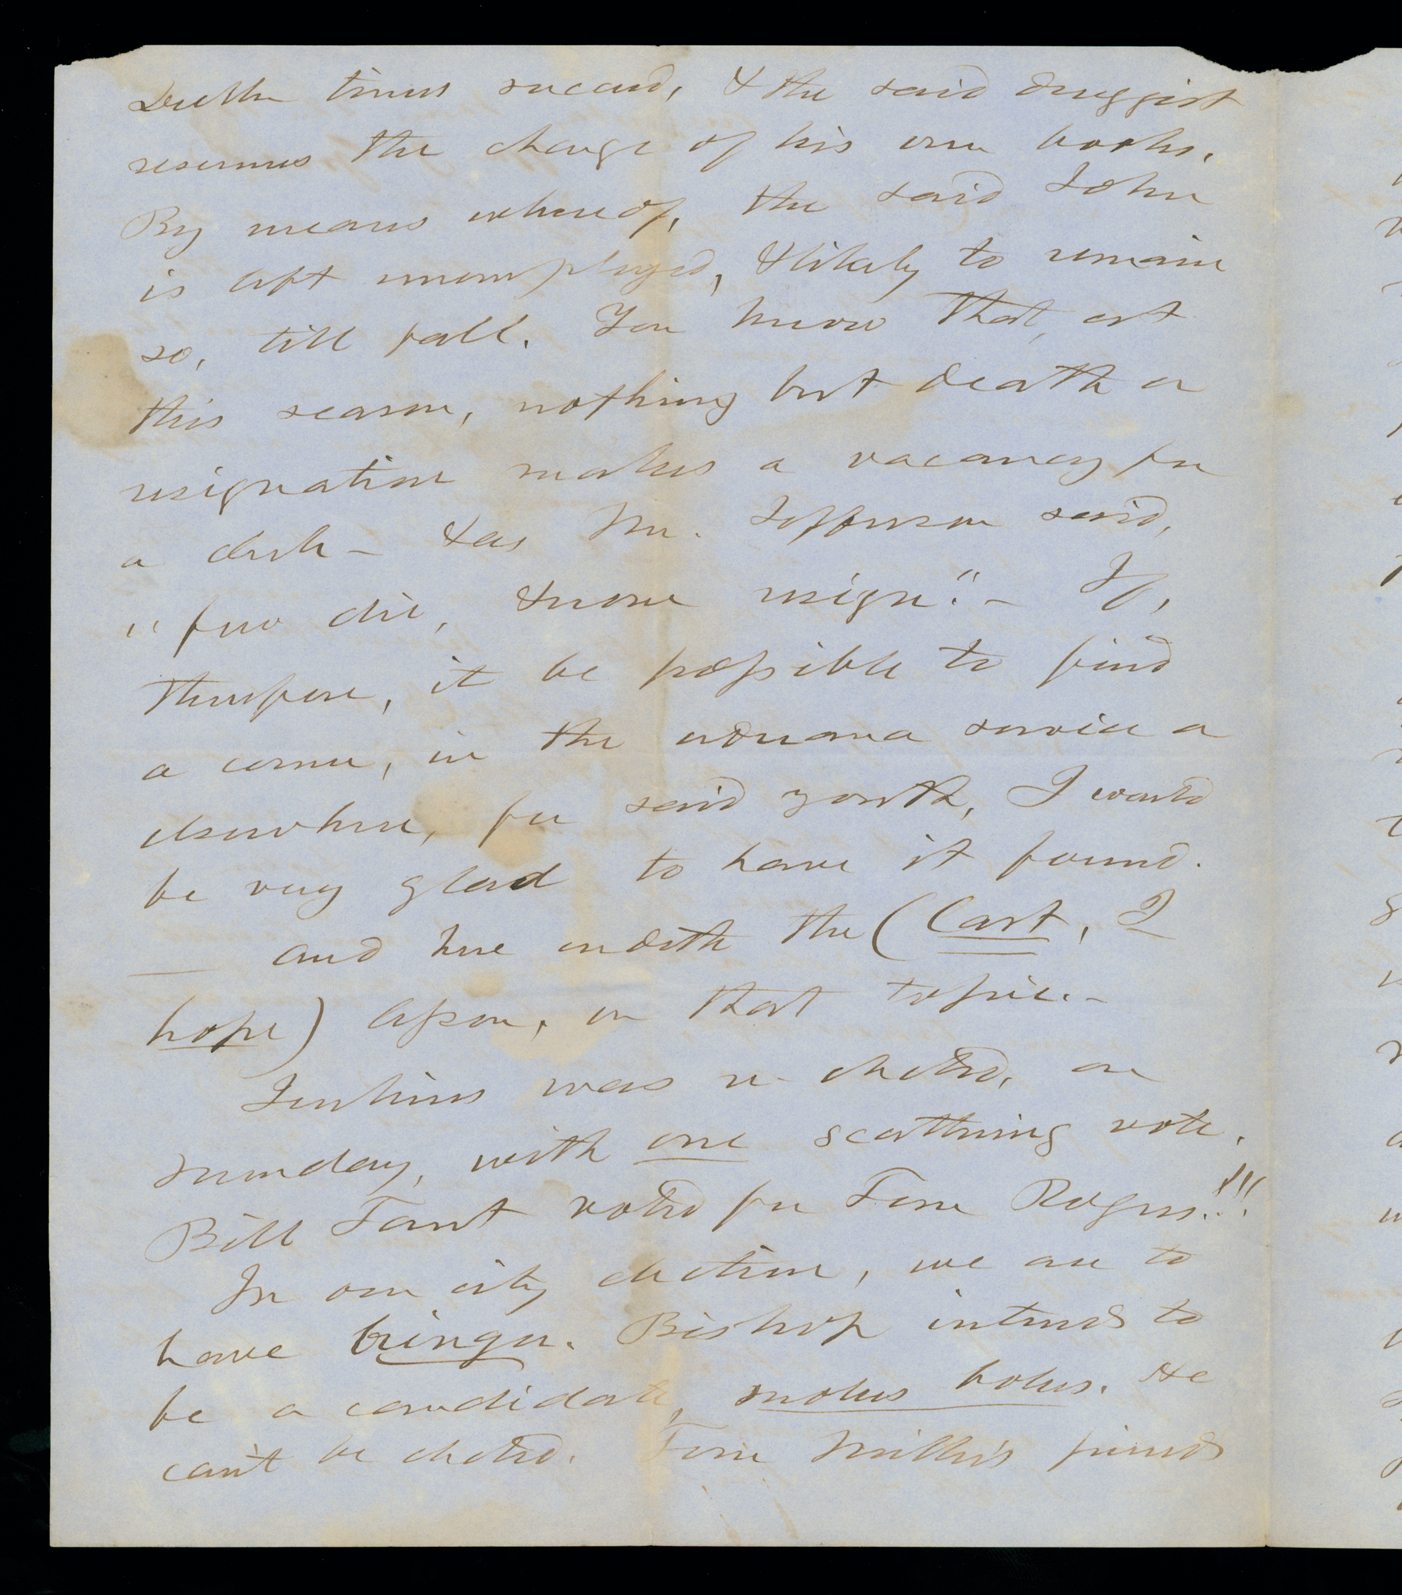 Duller times succeed, & the said druggist
resumes the charge of his own books.
By means whereof, the said John
is left unemployed, & likely to remain
so, till fall. You know that, at
this season, nothing but death or
resignation makes a vacancy for
a clerk – & as Mr. Jefferson said,
"few die, & none resign." – If,
therefore, it be possible to find
a corner, in the aduana service or
elsewhere, for said youth, I would
be very glad to have it found.
— And here endeth the (last, I
hope) lesson, on that topic. –
Jenkins was re-elected, on
Sunday, with one scathing vote.
Bill Fant voted for Tom Rogers!!!
In our city election, we are to
have Bishop intends to
be a candidate, He
can't be elected. Tom Miller's friends